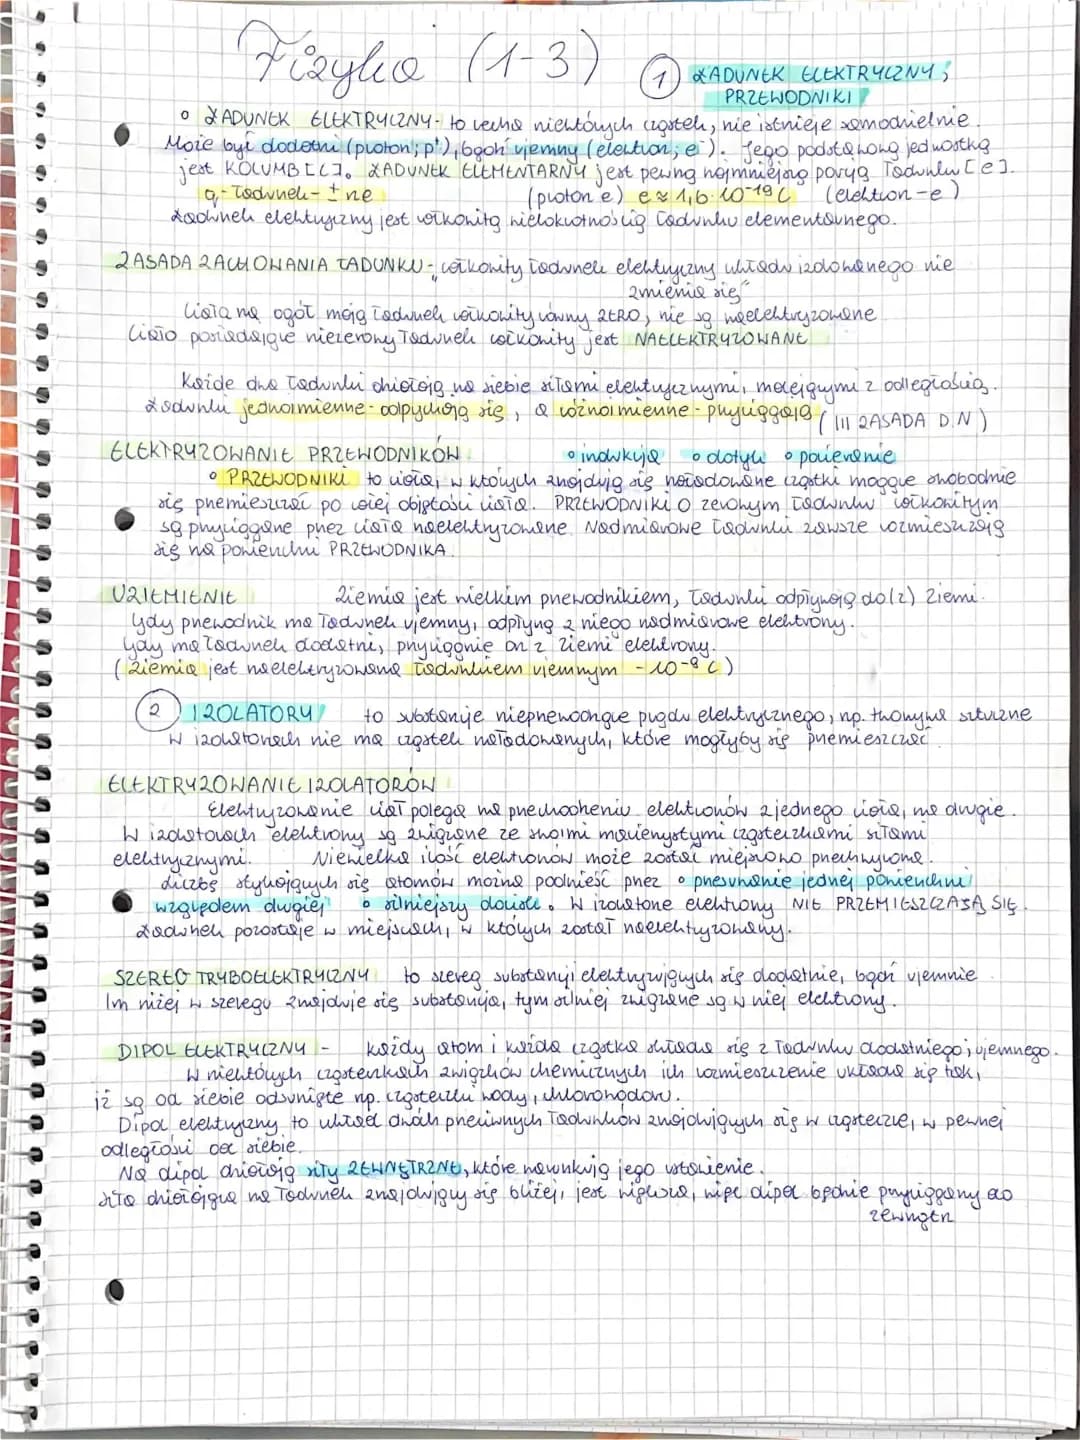 Fizyka (1-3)
① ŁADUNEK ELEKTRYCZNY;
PRZEWODNIKI
◦ ŁADUNEK ELEKTRYCZNY - to cecha niektórych cząstek, nie istnieje samodzielnie.
Może być dodatni (proton; p⁺), bądź ujemny (elektron; e⁻). Jego podstawową jednostką
jest KOLUMB [C]. ŁADUNEK ELEMENTARNY jest pewną najmniejszą porcją ładunku [e].
q - ładunek - ± ne (proton e) e ≈ 1,6·10⁻¹⁹ C (elektron -e)
Ładunek elektryczny jest całkowitą wielokrotnością ładunku elementarnego.
ZASADA ZACHOWANIA ŁADUNKU - „całkowity ładunek elektryczny układu izolowanego nie
zmienia się"
Ciała na ogół mają ładunek całkowity równy ZERO, nie są naelektryzowane
Ciało posiadające niezerowy ładunek całkowity jest NAELEKTRYZOWANE
Każde dwa ładunki działają na siebie siłami elektrycznymi, malejącymi z odległością.
Ładunki jednoimienne - odpychają się, a różnoimienne - przyciągają (III ZASADA D.N)
ELEKTRYZOWANIE PRZEWODNIKÓW ◦ indukcja ◦ dotyk ◦ pocieranie
◦ PRZEWODNIKI to ciała, w których znajdują się naładowane cząstki mogące swobodnie
się przemieszczać po całej objętości ciała. PRZEWODNIKI O zerowym ładunku całkowitym
są przyciągane przez ciała naelektryzowane. Nadmiarowe ładunki zawsze rozmieszczają
się na powierzchni PRZEWODNIKA.
UZIEMIENIE Ziemia jest wielkim przewodnikiem, ładunki odpływają do(z) Ziemi.
Gdy przewodnik ma ładunek ujemny, odpłyną z niego nadmiarowe elektrony.
Gdy ma ładunek dodatni, przyciągnie on z ziemi elektrony.
(Ziemia jest naelektryzowana ładunkiem ujemnym -10⁻⁸ C)
② IZOLATORY to substancje nieprzewodzące prądu elektrycznego, np. tworzywa sztuczne
W izolatorach nie ma cząstek naładowanych, które mogłyby się przemieszczać.
ELEKTRYZOWANIE IZOLATORÓW
Elektryzowanie ciał polega na przechodzeniu elektronów z jednego ciała, na drugie.
W izolatorach elektrony są związane ze swoimi macierzystymi cząsteczkami siłami
elektrycznymi. Niewielka ilość elektronów może zostać miejscowo przechwycona.
Liczbę stykających się atomów można podnieść przez ◦ przesuwanie jednej powierzchni
względem drugiej ◦ silniejszy docisk. W izolatorze elektrony NIE PRZEMIESZCZAJĄ SIĘ.
Ładunek pozostaje w miejscach, w których został naelektryzowany.
SZEREG TRYBOELEKTRYCZNY to szereg substancji elektryzujących się dodatnie, bądź ujemnie
Im niżej w szeregu znajduje się substancja, tym silniej związane są w niej elektrony.
DIPOL ELEKTRYCZNY - każdy atom i każda cząstka składa się z ładunku dodatniego i ujemnego.
W niektórych cząsteczkach związków chemicznych ich rozmieszczenie układa się tak,
iż są od siebie odsunięte np. cząsteczki wody, chlorowodoru.
Dipol elektryczny to układ dwóch przeciwnych ładunków znajdujących się w cząsteczce, w pewnej
odległości od siebie.
Na dipol działają siły ZEWNĘTRZNE, które warunkują jego ustawienie.
Siła działająca na ładunek znajdujący się bliżej, jest większa, więc dipol będzie przyciągany do
zewnątrz